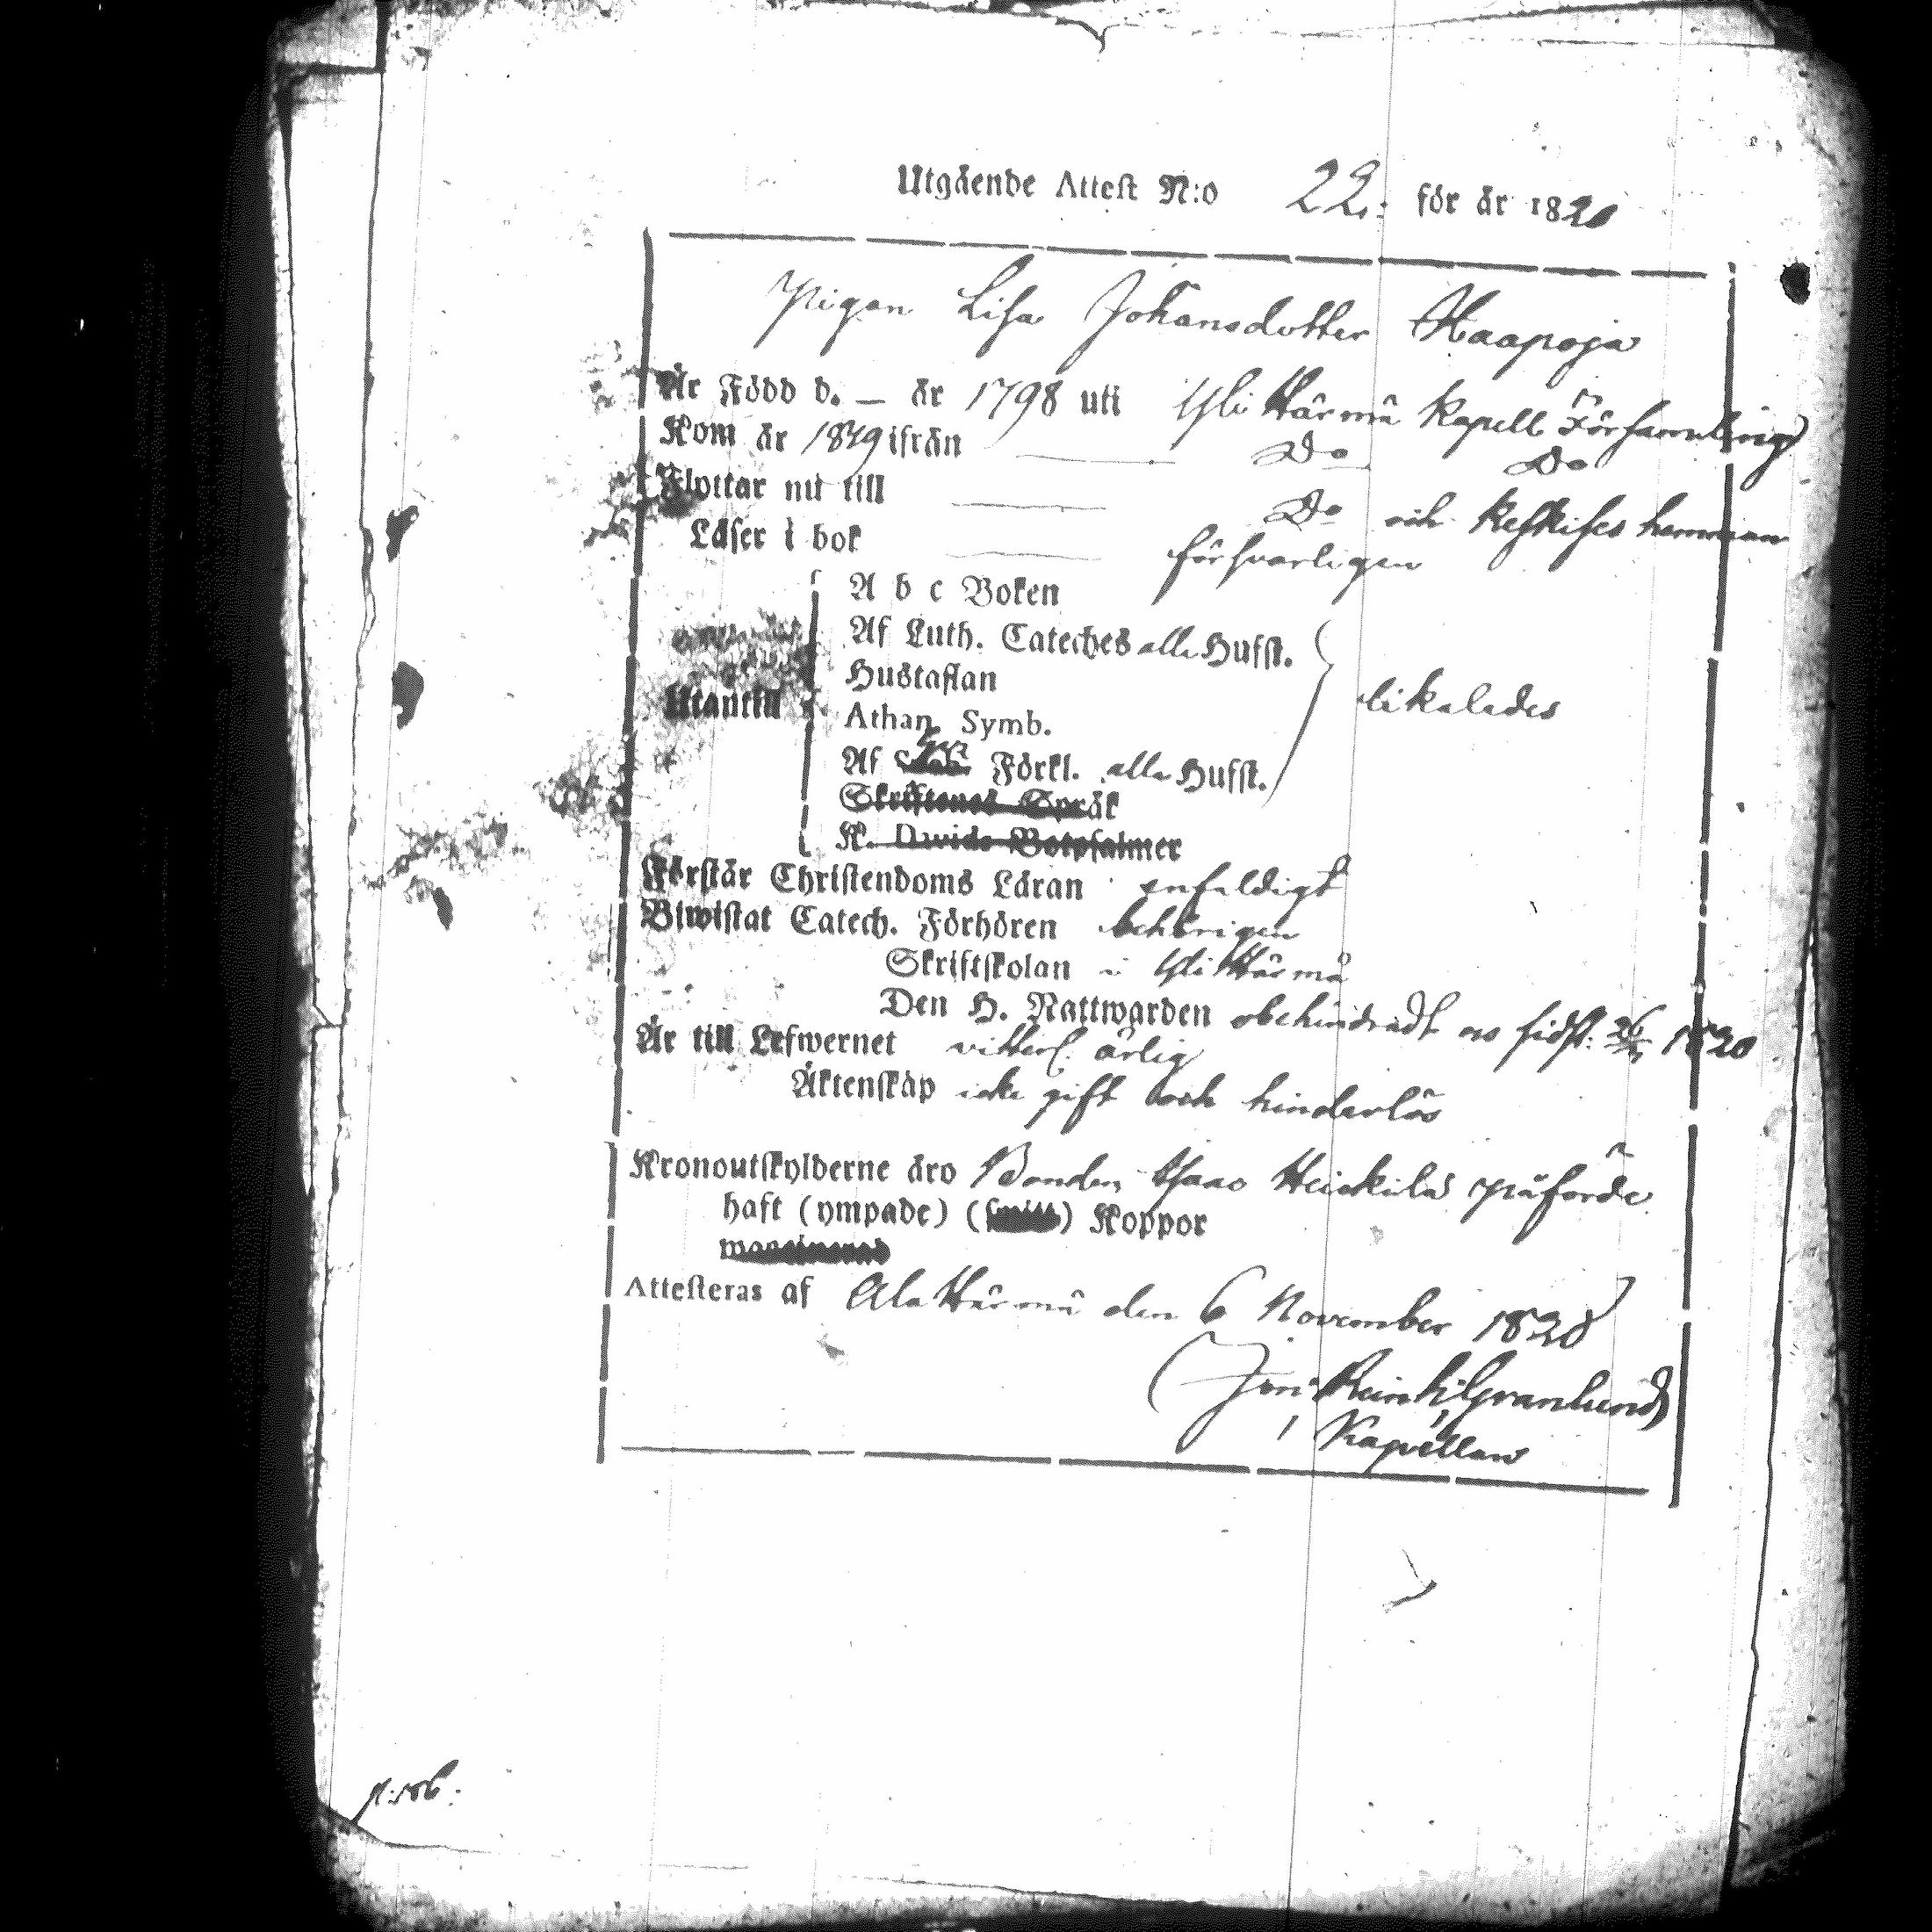 Utgående Attest N:o 22: för år 1820
Pigan Lisa Johansdotter Haapoja
Är Född d. — år 1798 uti Yli Härmä Kapell Församling
Kom år 1819 ifrån Do Do
Flyttar nu till Do och Keskises hemman
Läser i bok försvarligen
A b c Boken
Af Luth. Cateches alla Hufst.
Hustaflan
Utantill Athan. Symb. likaledes
Af Förkl. alla Hufst.
Skriftenes Språk
K. Davids Botpsalmer
Förstår Christendoms Läran enfaldigt
Biwistat Catech. Förhören behörigen
Skriftskolan i Yli Härmä
Den H. Nattwarden obehindradt sidst: 1820
Är till Lefwernet vitterl. ärlig
Äktenskap icke gift och hinderlös
Kronoutskylderne äro Bonden Isaac påförde
haft (ympade) Koppor
Attesteras af Ala Härmä den 6 November 1820
Granlund
Kapellan